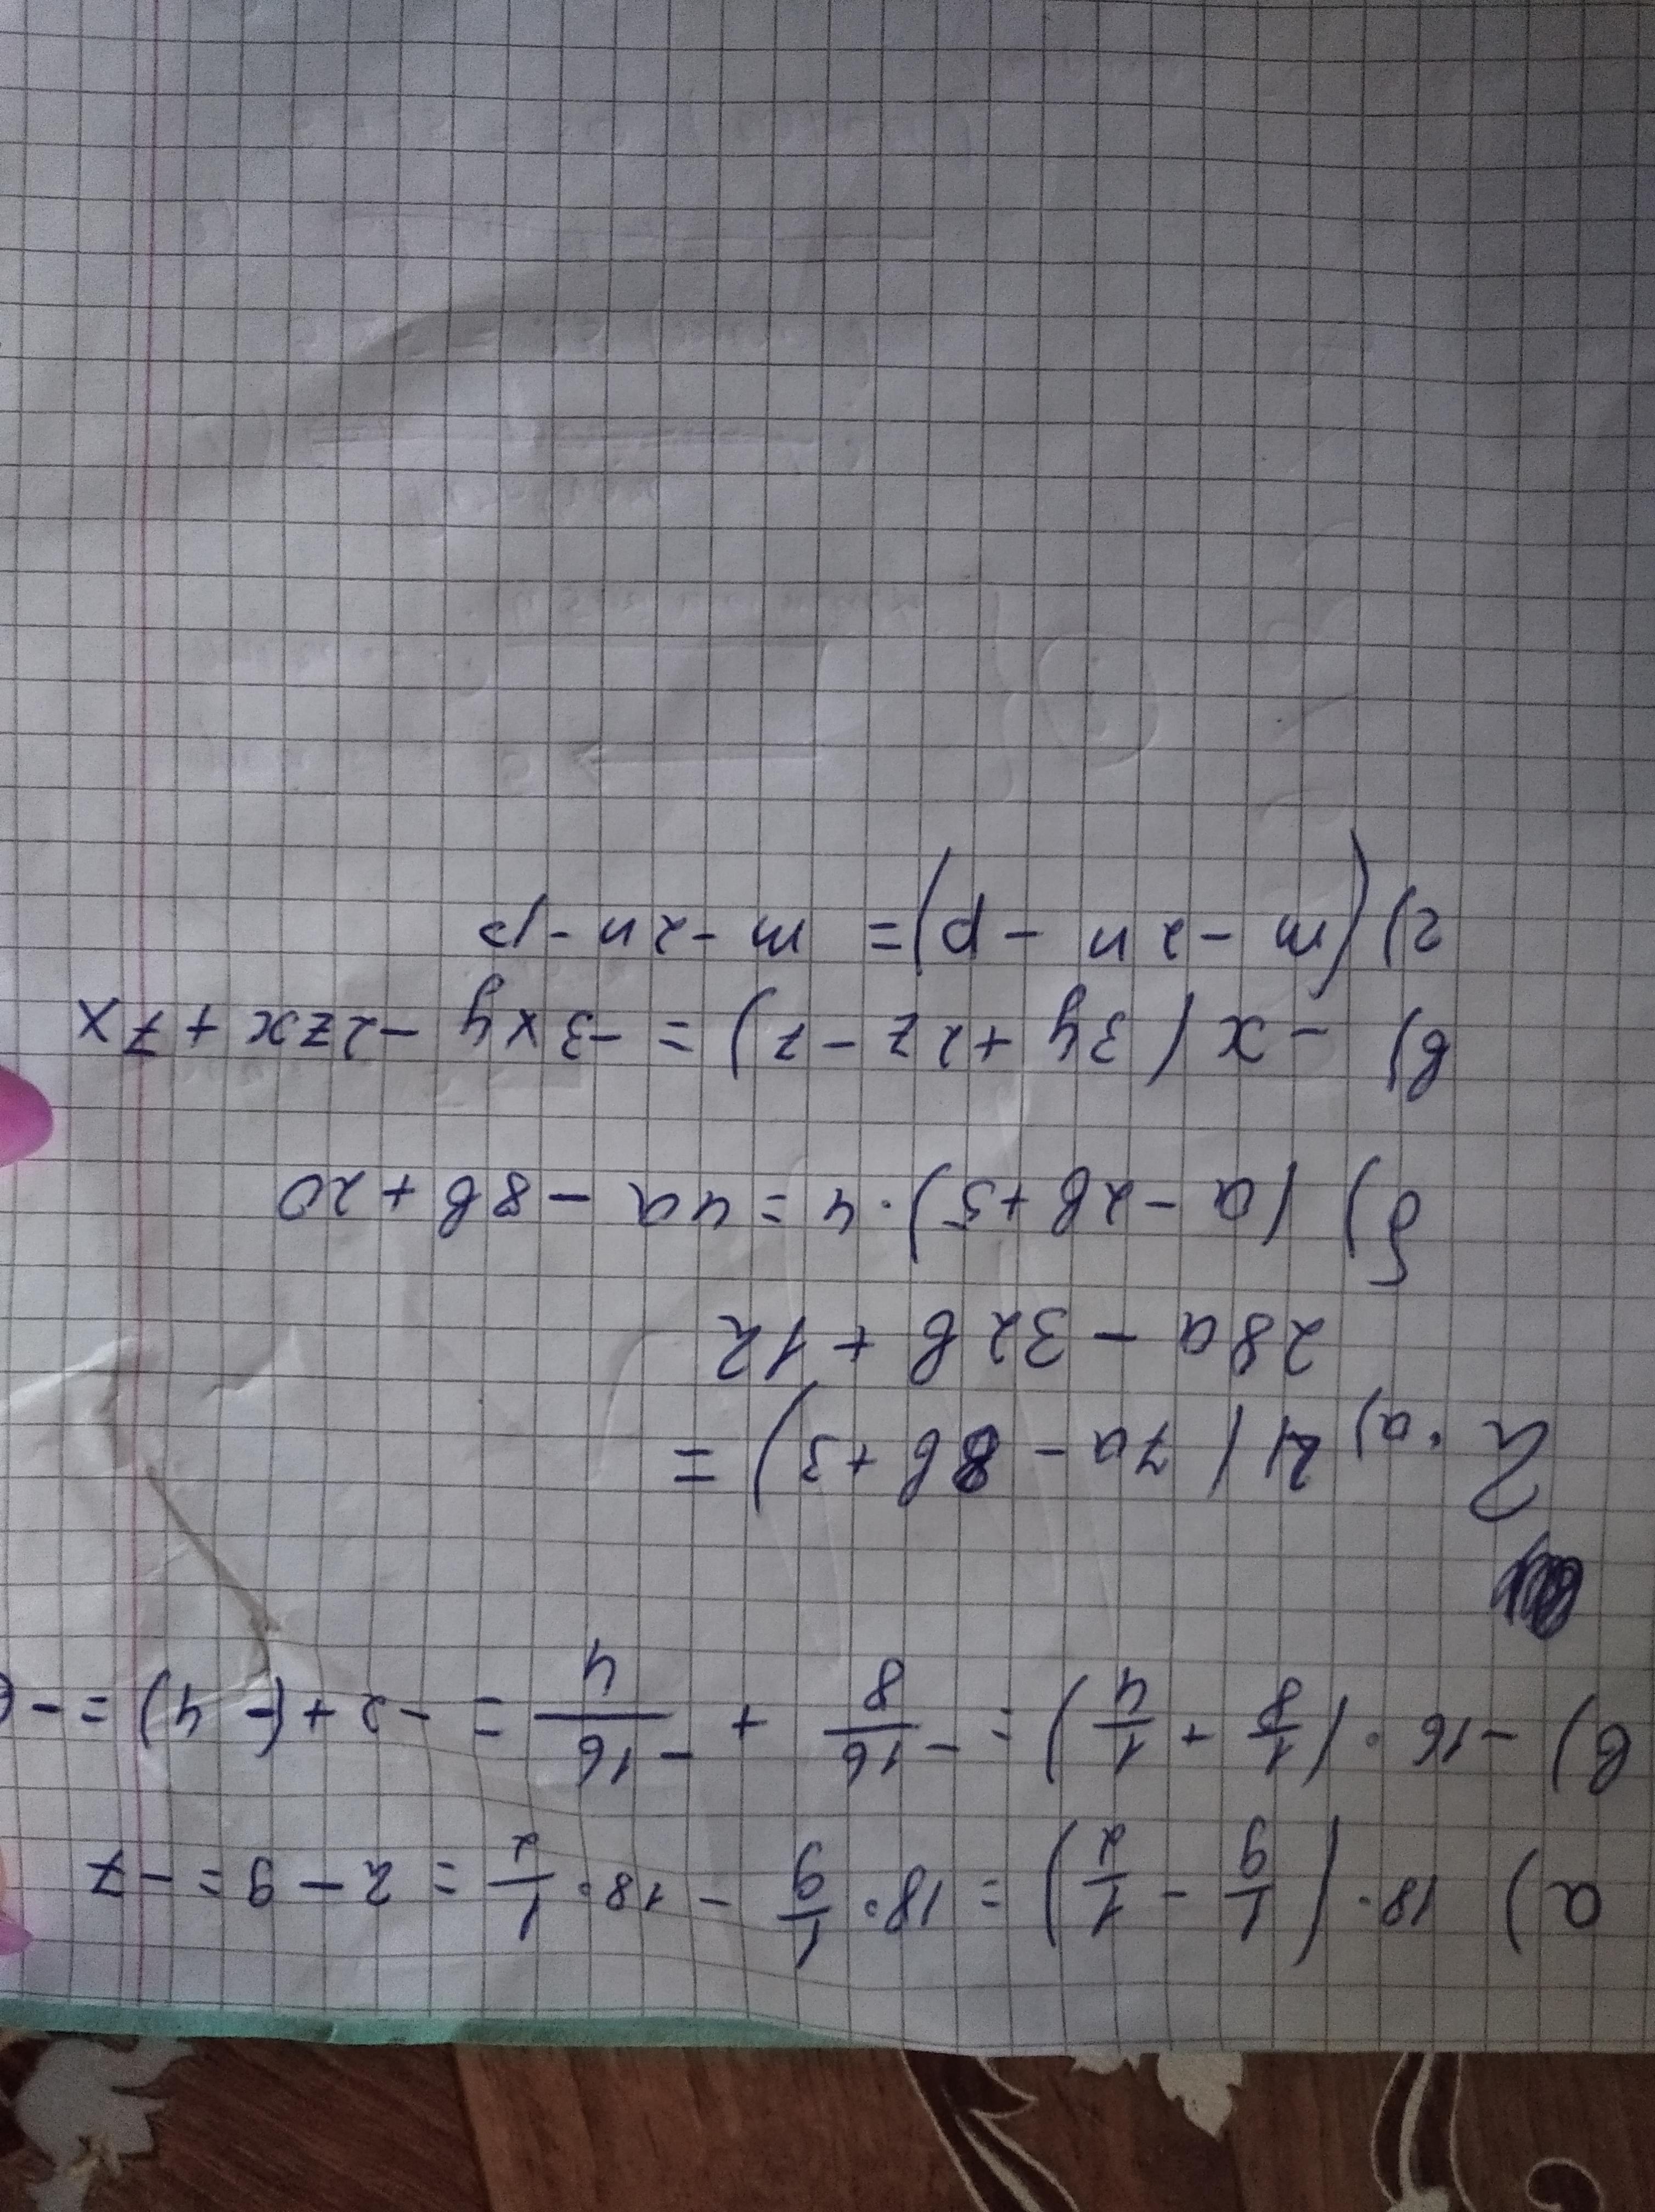 а) 18·(1/9 - 1/2) = 18·1/9 - 18·1/2 = 2 - 9 = -7
в) -16·(1/8 + 1/4) = -16/8 + -16/4 = -2 + (-4) = -
2. а) 4(7a - 8b + 3) =
28a - 32b + 12
б) (a - 2b + 5)·4 = 4a - 8b + 20
в) -x(3y + 2z - 7) = -3xy - 2zx + 7x
г) (m - 2n - p) = m - 2n - p